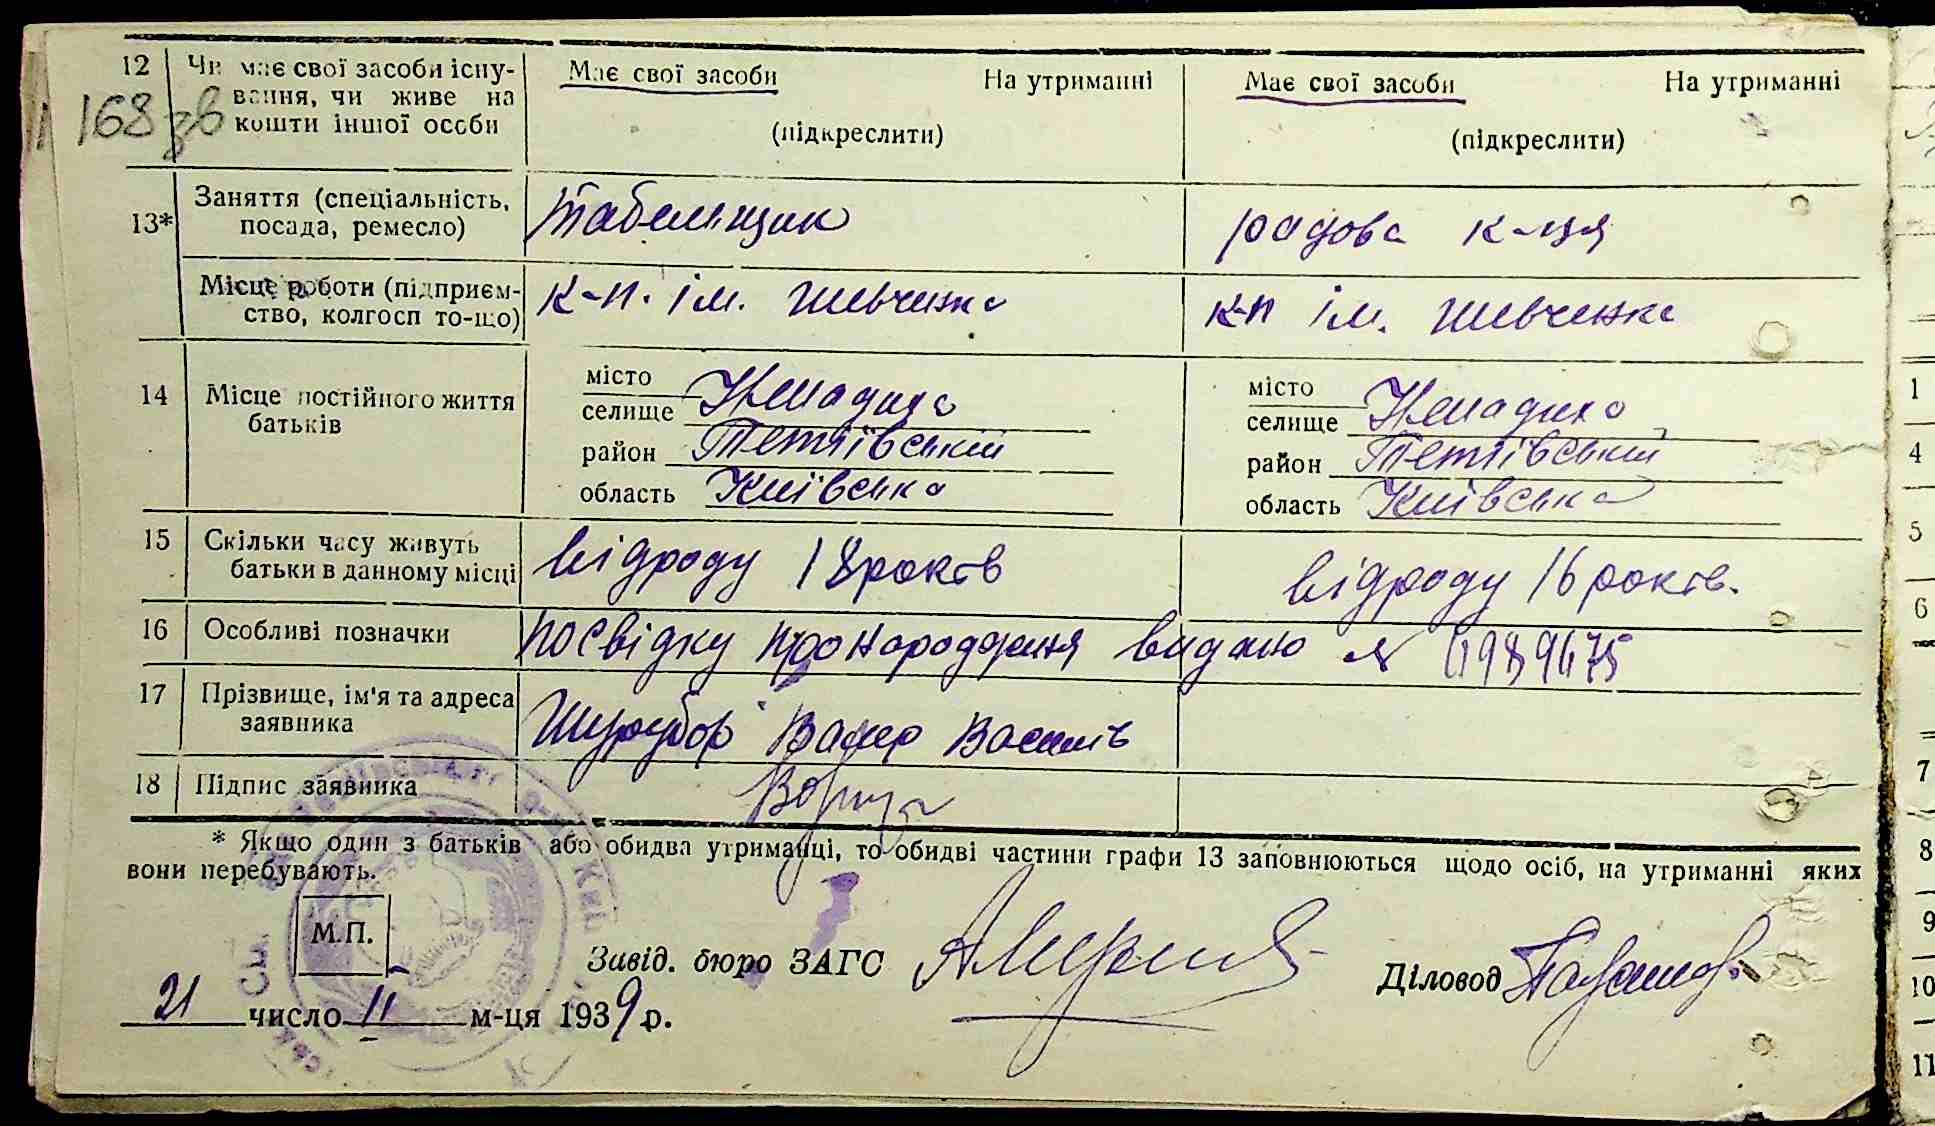 12 Чи має свої засоби існування, чи живе на кошти іншої особи
Має свої засоби На утриманні Має свої засоби На утриманні
(підкреслити) (підкреслити)
168 зв
13* Заняття (спеціальність, посада, ремесло) Табельщик рядова к-ця
Місце роботи (підприємство, колгосп то-що) к-п. ім. Шевченка к-п ім. Шевченка
14 Місце постійного життя батьків
місто місто
селище Кашадиха селище Кашадиха
район Тетіївський район Тетіївський
область Київська область Київська
15 Скільки часу живуть батьки в данному місці відроду 18 років відроду 16 років.
16 Особливі позначки посвідку про народження видано №
17 Прізвище, ім'я та адреса заявника Василів
18 Підпис заявника
* Якщо один з батьків або обидва утриманці, то обидві частини графи 13 заповнюються щодо осіб, на утриманні яких
вони перебувають.
М.П.
Завід. бюро ЗАГС Діловод
21 число 11 м-ця 1939 р.